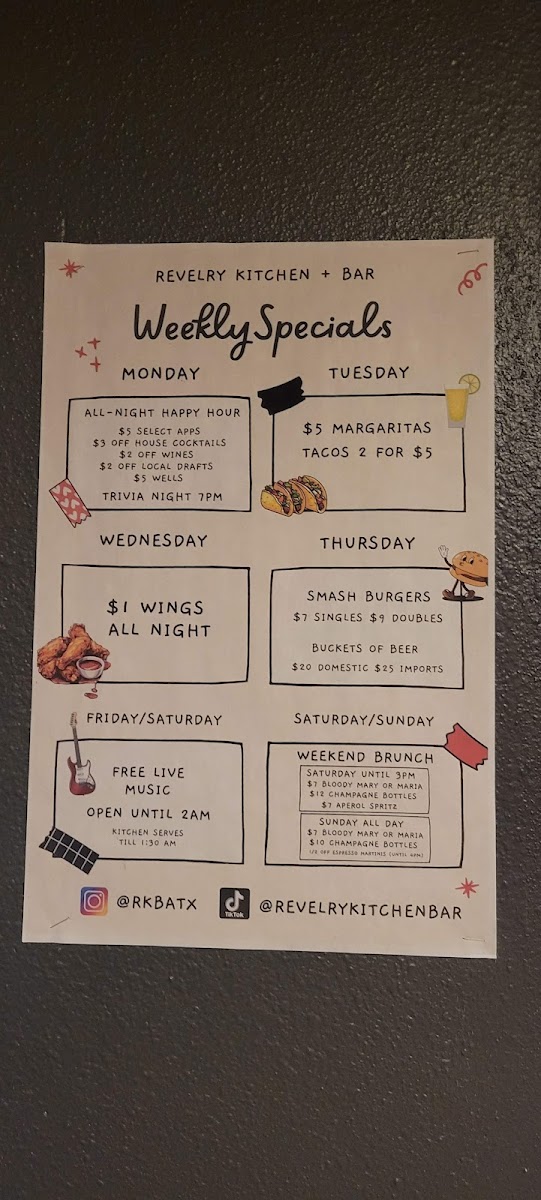 REVELRY KITCHEN + BAR
Weekly Specials
MONDAY
ALL-NIGHT HAPPY HOUR
$5 SELECT APPS
$3 OFF HOUSE COCKTAILS
$2 OFF WINES
$2 OFF LOCAL DRAFTS
$5 WELLS
TRIVIA NIGHT 7PM
TUESDAY
$5 MARGARITAS
TACOS 2 FOR $5
WEDNESDAY
$1 WINGS
ALL NIGHT
THURSDAY
SMASH BURGERS
$7 SINGLES $9 DOUBLES
BUCKETS OF BEER
$20 DOMESTIC $25 IMPORTS
FRIDAY/SATURDAY
FREE LIVE
MUSIC
OPEN UNTIL 2AM
KITCHEN SERVES
TILL 1:30 AM
SATURDAY/SUNDAY
WEEKEND BRUNCH
SATURDAY UNTIL 3PM
$7 BLOODY MARY OR MARIA
$12 CHAMPAGNE BOTTLES
$7 APEROL SPRITZ
SUNDAY ALL DAY
$7 BLOODY MARY OR MARIA
$10 CHAMPAGNE BOTTLES
1/2 OFF ESPRESSO MARTINIS (UNTIL 4PM)
@RKBATX
TikTok
@REVELRYKITCHENBAR